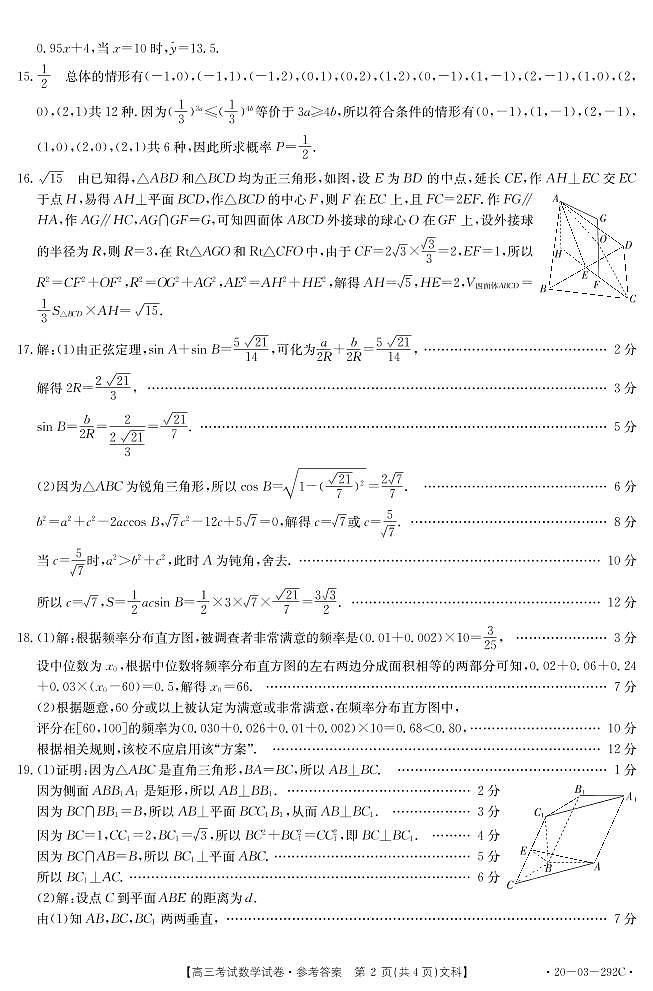 0.95x+4,当 x=10 时,ŷ=13.5.
15. 1/2 总体的情形有(-1,0),(-1,1),(-1,2),(0,1),(0,2),(1,2),(0,-1),(1,-1),(2,-1),(1,0),(2,
0),(2,1)共 12 种.因为(1/3)^{3a}≤(1/3)^{4b}等价于 3a≥4b,所以符合条件的情形有(0,-1),(1,-1),(2,-1),
(1,0),(2,0),(2,1)共 6 种,因此所求概率 P=1/2.
16. √15 由已知得,△ABD 和△BCD 均为正三角形,如图,设 E 为 BD 的中点,延长 CE,作 AH⊥EC 交 EC
于点 H,易得 AH⊥平面 BCD,作△BCD 的中心 F,则 F 在 EC 上,且 FC=2EF.作 FG∥
HA,作 AG∥HC,AG∩GF=G,可知四面体 ABCD 外接球的球心 O 在 GF 上,设外接球
的半径为 R,则 R=3,在 Rt△AGO 和 Rt△CFO 中,由于 CF=2√3×√3/3=2,EF=1,所以
R²=CF²+OF²,R²=OG²+AG²,AE²=AH²+HE²,解得 AH=√5,HE=2,V四面体ABCD=
1/3 S△BCD×AH=√15.
A
G
O
D
H
E
F
B
C
17. 解:(1)由正弦定理,sin A+sin B=5√21/14,可化为a/2R+b/2R=5√21/14, …… 2 分
解得 2R=2√21/3, …… 3 分
sin B=b/2R=2/(2√21/3)=√21/7. …… 5 分
(2)因为△ABC 为锐角三角形,所以 cos B=√(1-(√21/7)²)=2√7/7. …… 6 分
b²=a²+c²-2accos B,√7c²-12c+5√7=0,解得 c=√7或 c=5/√7. …… 8 分
当 c=5/√7时,a²>b²+c²,此时 A 为钝角,舍去. …… 10 分
所以 c=√7,S=1/2 acsin B=1/2×3×√7×√21/7=3√3/2. …… 12 分
18. (1)解:根据频率分布直方图,被调查者非常满意的频率是(0.01+0.002)×10=3/25, …… 3 分
设中位数为 x₀,根据中位数将频率分布直方图的左右两边分成面积相等的两部分可知,0.02+0.06+0.24
+0.03×(x₀-60)=0.5,解得 x₀=66. …… 7 分
(2)根据题意,60 分或以上被认定为满意或非常满意,在频率分布直方图中,
评分在[60,100]的频率为(0.030+0.026+0.01+0.002)×10=0.68<0.80, …… 10 分
根据相关规则,该校不应启用该“方案”. …… 12 分
19. (1)证明:因为△ABC 是直角三角形,BA=BC,所以 AB⊥BC. …… 1 分
因为侧面 ABB₁A₁ 是矩形,所以 AB⊥BB₁. …… 2 分
因为 BC∩BB₁=B,所以 AB⊥平面 BCC₁B₁,从而 AB⊥BC₁. …… 3 分
因为 BC=1,CC₁=2,BC₁=√3,所以 BC²+BC₁²=CC₁²,即 BC⊥BC₁. …… 4 分
因为 BC∩AB=B,所以 BC₁⊥平面 ABC. …… 5 分
所以 BC₁⊥AC. …… 6 分
(2)解:设点 C 到平面 ABE 的距离为 d.
由(1)知 AB,BC,BC₁ 两两垂直, …… 7 分
B₁
A₁
C₁
E
B
A
C
【高三考试数学试卷·参考答案 第 2 页(共 4 页)文科】
·20-03-292C·